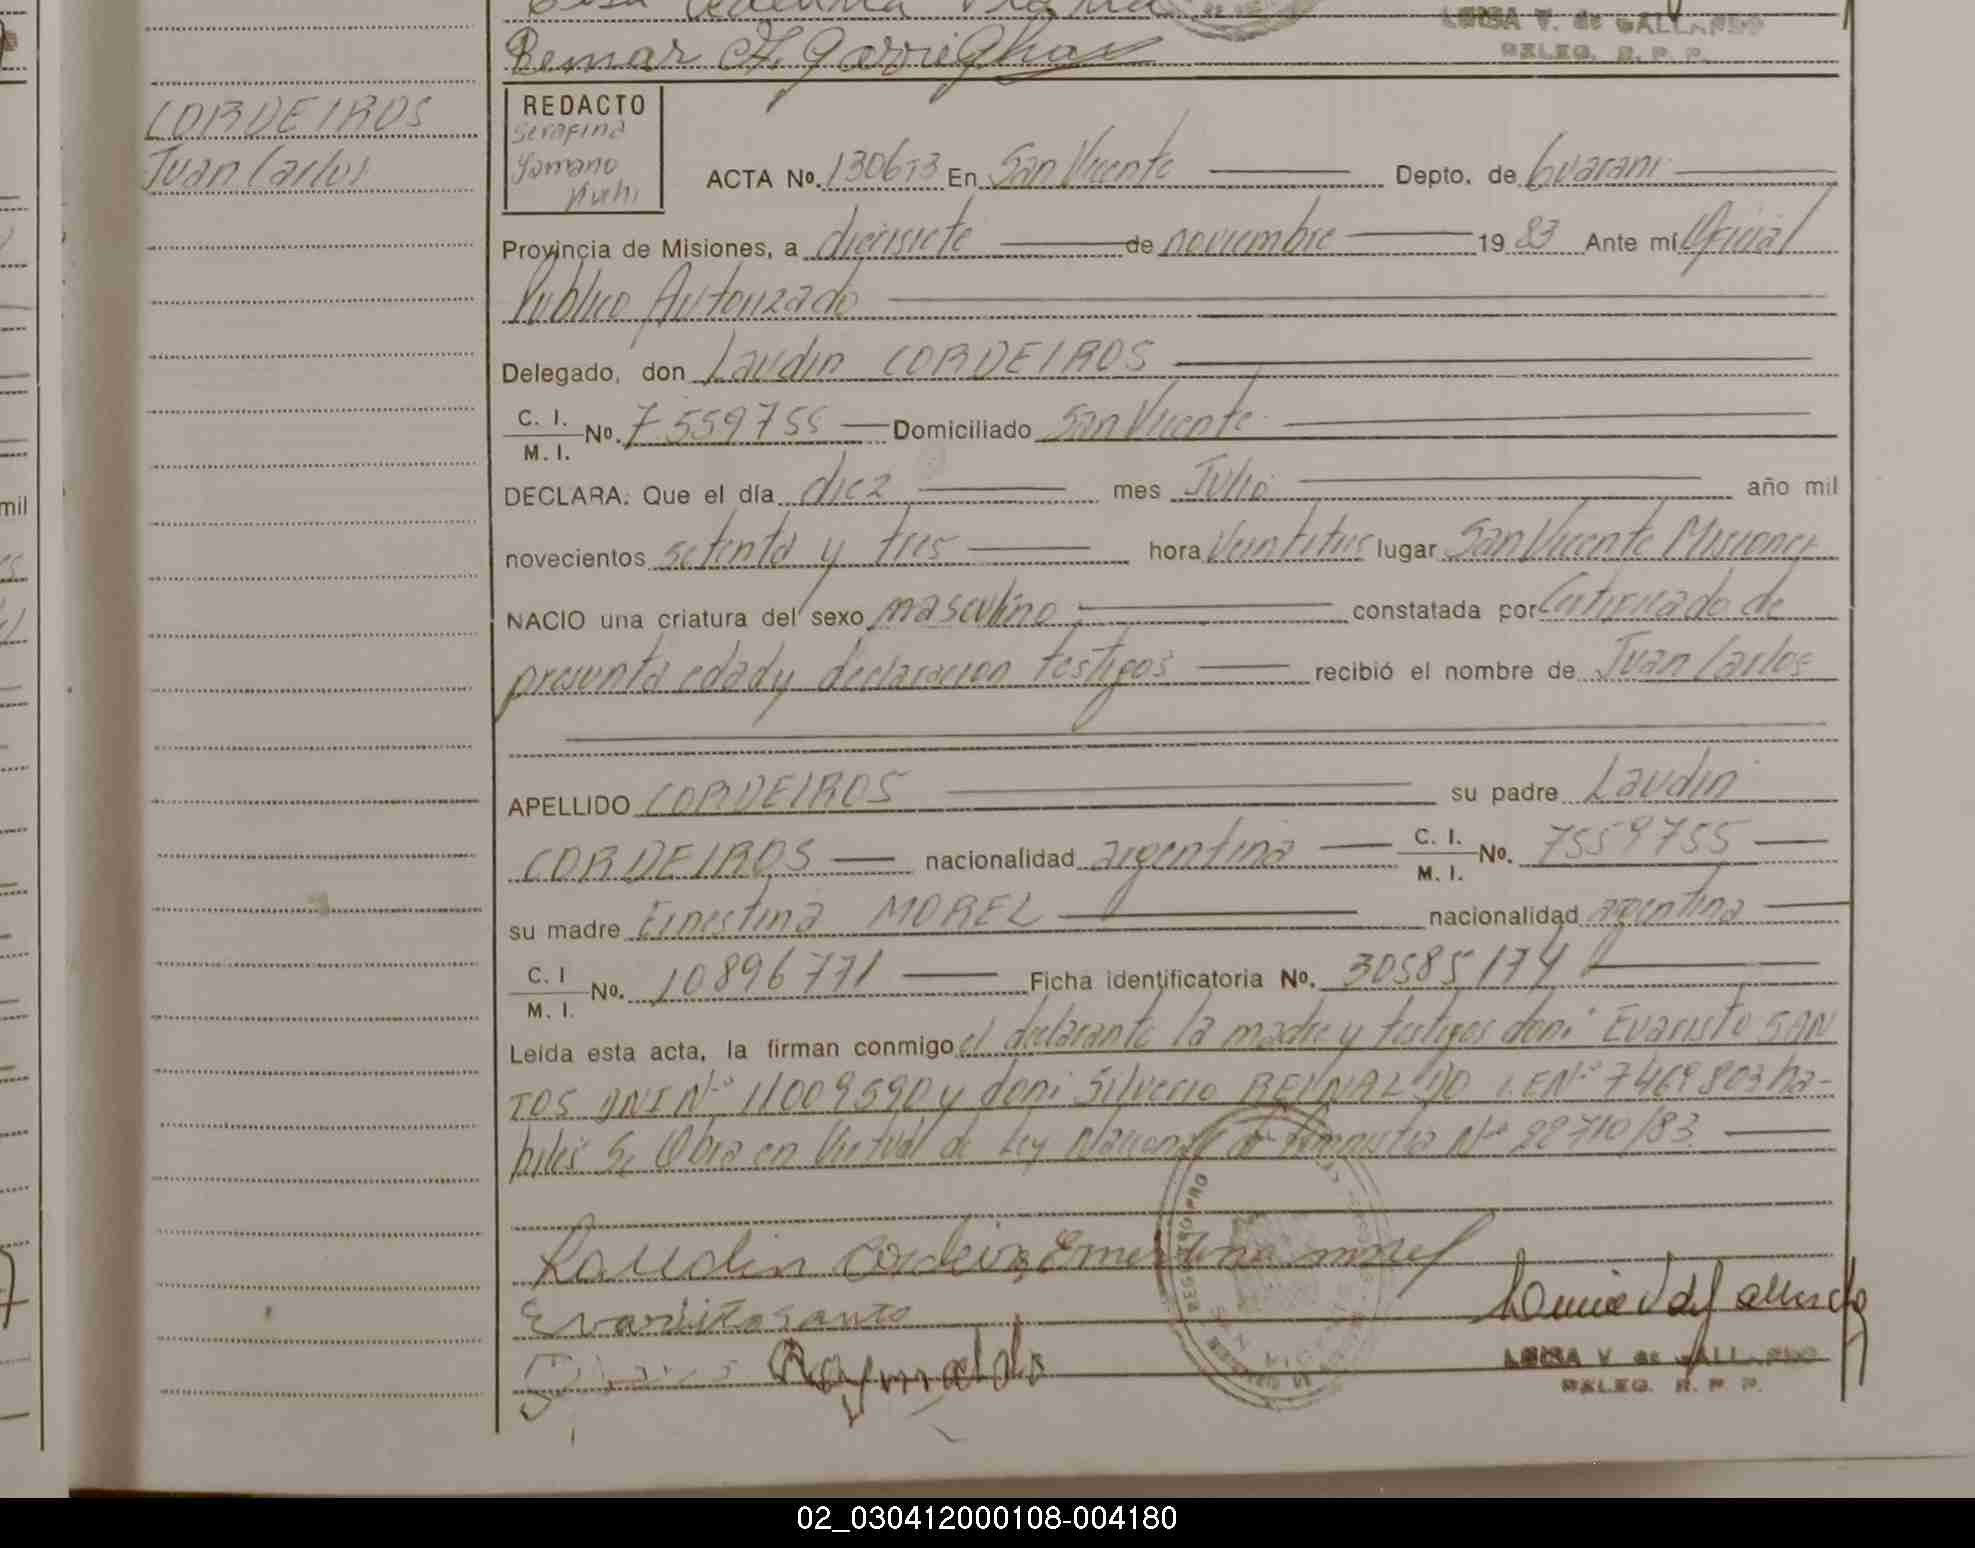 Remar
LUISA V. de GALLARDO
DELEG. R. P. P.
CORDEIROS
Juan Carlos
REDACTO
Serafina
ACTA Nº. 130613 En San Vicente Depto. de Guarani
Provincia de Misiones, a diecisiete de noviembre 1983 Ante mí Oficial
Publico Autorizado
Delegado, don Laudin CORDEIROS
C. I.
M. I. Nº. 7.559755 Domiciliado San Vicente
DECLARA: Que el día diez mes Julio año mil
novecientos setenta y tres hora veintitres lugar San Vicente Misiones
NACIO una criatura del sexo masculino constatada por Certificado de
presunta edad y declaracion testigos recibió el nombre de Juan Carlos
APELLIDO CORDEIROS su padre Laudin
CORDEIROS nacionalidad argentina C. I.
M. I. Nº. 7559755
su madre Ernestina MOREL nacionalidad argentina
C. I
M. I. Nº. 10896771 Ficha identificatoria Nº. 30585174
Leída esta acta, la firman conmigo el declarante la madre y testigos don: Evaristo SAN
TOS DNI Nº 11009590 y don: Silverio REYNALDO L.E Nº 7469803 ha-
biles Se Obra en Virtud de Ley Nacional de Amnistia Nº 22710/83.
Laudin
Evaristo santo
Raynaldo
LUISA V. de GALLARDO
DELEG. R. P. P.
mil
02_030412000108-004180